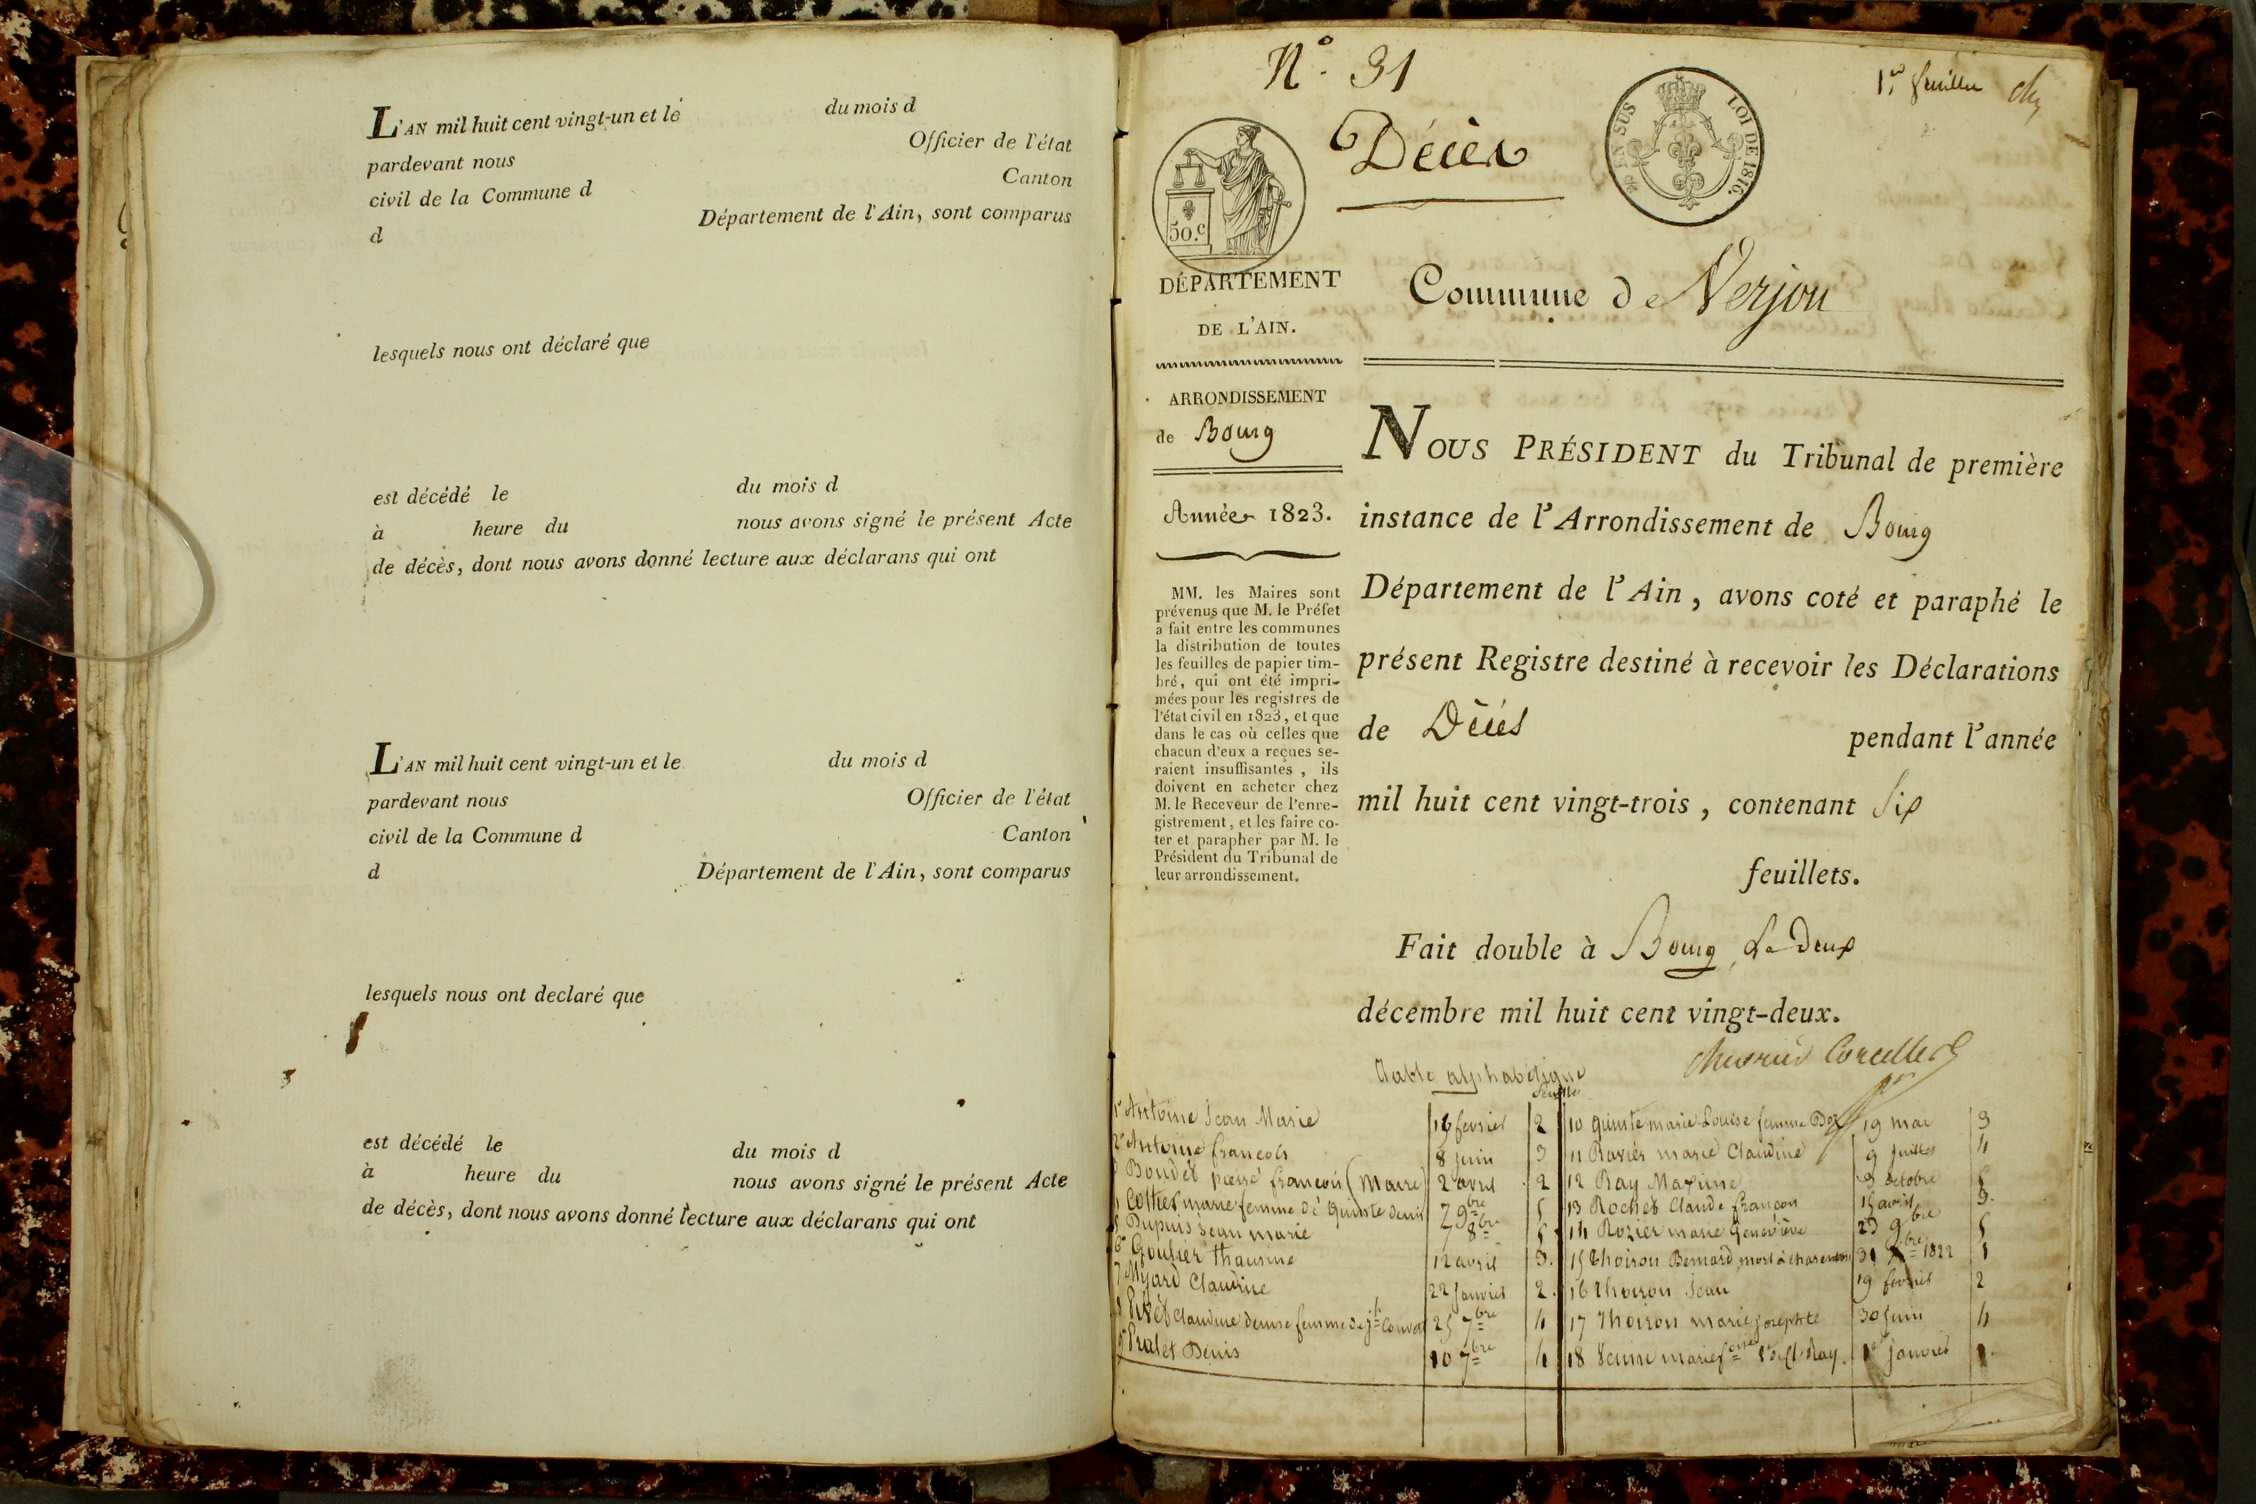 L'AN mil huit cent vingt-un et le du mois d
pardevant nous Officier de l'état
civil de la Commune d Canton
d Département de l'Ain, sont comparus
lesquels nous ont déclaré que
est décédé le du mois d
à heure du nous avons signé le présent Acte
de décès, dont nous avons donné lecture aux déclarans qui ont
L'AN mil huit cent vingt-un et le du mois d
pardevant nous Officier de l'état
civil de la Commune d Canton
d Département de l'Ain, sont comparus
lesquels nous ont declaré que
est décédé le du mois d
à heure du nous avons signé le présent Acte
de décès, dont nous avons donné lecture aux déclarans qui ont
N.° 31
1.er feuillet
Décès
EN SUS
LOI DE 1816.
50.c
DÉPARTEMENT
DE L'AIN.
Commune de Verjon
ARRONDISSEMENT
de Bourg
Année 1823.
MM. les Maires sont
prévenus que M. le Préfet
a fait entre les communes
la distribution de toutes
les feuilles de papier tim-
bré, qui ont été impri-
mées pour les registres de
l'état civil en 1823, et que
dans le cas où celles que
chacun d'eux a reçues se-
raient insuffisantes, ils
doivent en acheter chez
M. le Receveur de l'enre-
gistrement, et les faire co-
ter et parapher par M. le
Président du Tribunal de
leur arrondissement.
NOUS PRÉSIDENT du Tribunal de première
instance de l'Arrondissement de Bourg
Département de l'Ain, avons coté et paraphé le
présent Registre destiné à recevoir les Déclarations
de Décès pendant l'année
mil huit cent vingt-trois, contenant Six
feuillets.
Fait double à Bourg, Le Deux
décembre mil huit cent vingt-deux.
Table alphabétique
1° Antoine Jean Marie février 2
2° Antoine francois 8 juin 3
Boudet pierre francois (Maire) 2 avril 2
Cottier marie femme de Quinte Denis 7 9bre 5
Dupuis Jean marie 7 8bre 5
6° Goulier 12 avril 3.
7 Myard Claudine 22 janvier 2.
Claudine femme de 25 7bre 4
9° Pralet Denis 10 7bre 4
10 Quinte marie Louise femme 19 mai 3
11 Ravier marie Claudine 9 juillet 4
12 Ray Maxime octobre 5
13 Rochet Claude françois 15 avril 3.
14 Rozier marie Geneviève 23 9bre 5
15 Thoiron Bernard mort à 1822 1
16 Thoiron Jean 19 février 2
17 Thoiron marie josephte 30 juin 4
18 marie Ray. janvier 1.